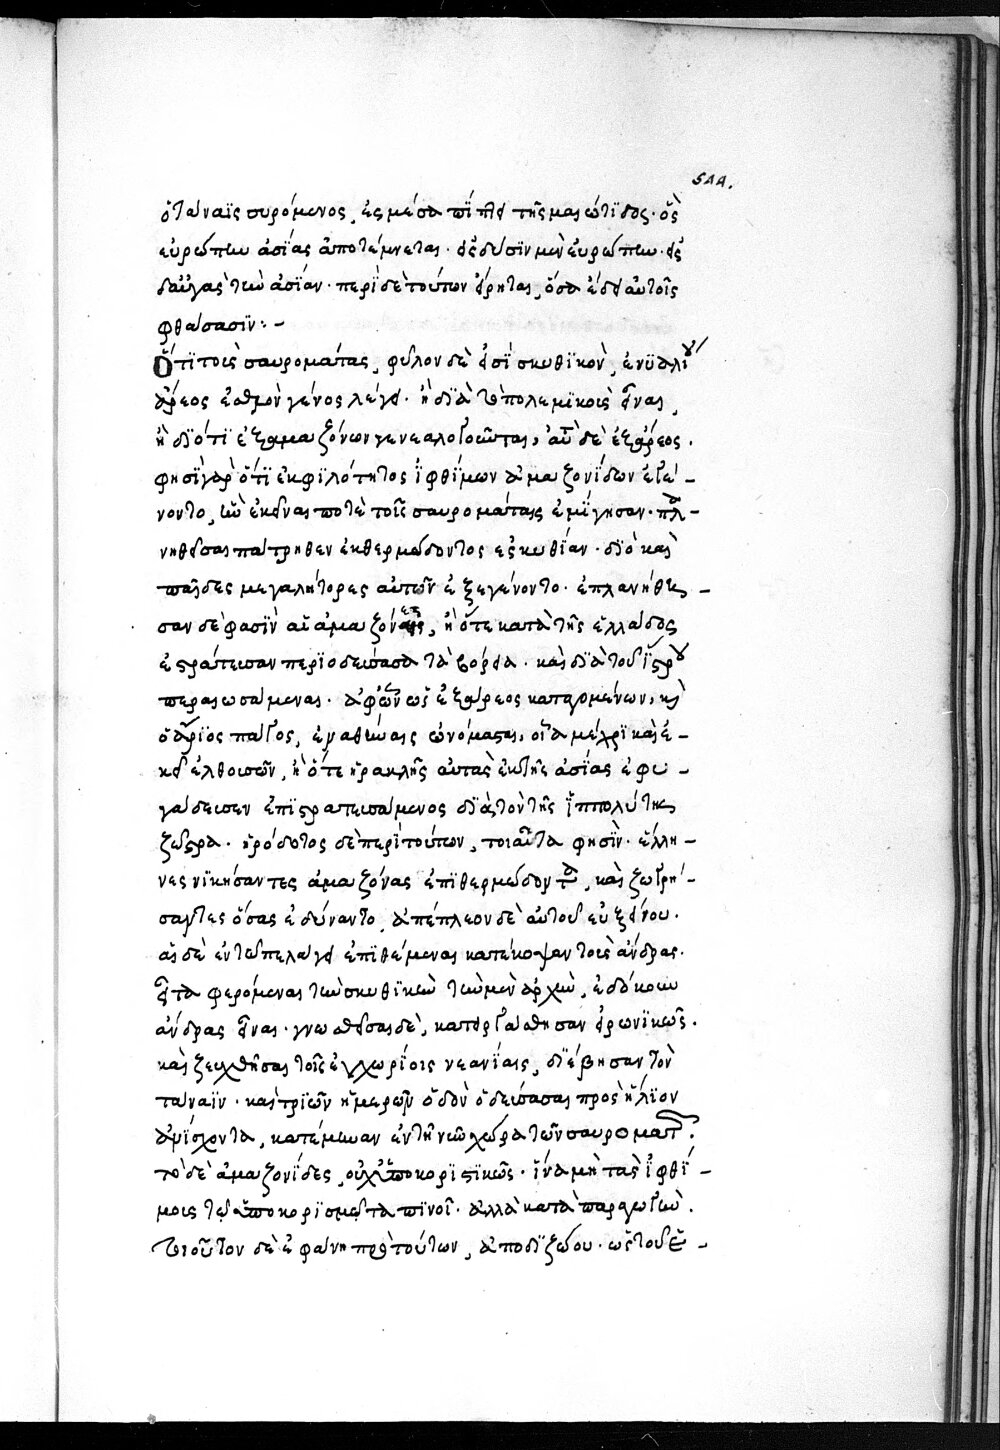 544.
ὁ τάναϊς συρόμενος, ἐς μέσα πίπτει τῆς μαιώτιδος· ὃς
εὐρώπην ἀσίας ἀποτέμνεται· ἐς δύσιν μὲν εὐρώπην· ἐς
δ' αὐγὰς τὴν ἀσίαν· περὶ δὲ τούτων εἴρηται, ὅσα ἔδει αὐτοῖς
φθάσασιν:-
Ὅτι τοὺς σαυρομάτας, φῦλον δὲ εἰσὶ σκυθικὸν, ἐνυαλίου
ἄρεος ἔσθμὸν γένος λέγει· ἢ διὰ τὸ πολεμικοὺς εἶναι,
ἢ διότι ἐξ ἀμαζόνων γενεαλογοῦνται, αὗται δὲ ἐξ ἄρεος·
φησὶ γὰρ ὅτι ἐκ φιλότητος ἰφθίμων ἀμαζονίδων ἐγέ-
νοντο, ἣν ἐκεῖναι ποτὲ τοῖς σαυρομάταις ἐμίγησαν· πλα-
νηθεῖσαι πάτρηθεν ἐκ θερμώδοντος ἐς σκυθίαν· διὸ καὶ
παῖδες μεγαλήτορες αὐτῶν ἐξεγένοντο· ἐπλανήθη-
σαν δέ φασιν αἱ ἀμαζόνες, ἢ ὅτε κατὰ τῆς ἑλλάδος
ἐστράτευσαν περιοδεύσασαι τὰ βόρεια· καὶ διὰ τοῦ ἴστρου
περαιωσάμεναι· ἀφ' ὧν ὡς ἐξ ἄρεος καταγομένων, καὶ
ὁ ἄρειος πάγος, ἐν ἀθήναις ὠνόμασται, οἷα μέχρι καὶ ἐ-
κεῖ ἐλθουσῶν, ἢ ὅτε ἡρακλῆς αὐτὰς ἐκ τῆς ἀσίας ἐφυ-
γάδευσεν ἐπιστρατευσάμενος διὰ τὸν τῆς ἱππολύτης
ζωστῆρα· ἡρόδοτος δὲ περὶ τούτων, τοιαῦτα φησίν· ἕλλη-
νες νικήσαντες ἀμαζόνας ἐπὶ θερμώδοντα, καὶ ζωγρή-
σαντες ὅσας ἐδύναντο, ἀπέπλεον δὲ αὐτοῦ εὐξείνου·
αἱ δὲ ἐν τῷ πελάγει ἐπιθέμεναι κατέκοψαν τοὺς ἄνδρας·
εἶτα φερόμεναι τὴν σκυθικὴν τὴν μὲν ἀρχὴν, ἐδόκουν
ἄνδρας εἶναι· γνωσθεῖσαι δὲ, κατειργάσθησαν ἐρωτικῶς·
καὶ ζευχθῆσαι τοῖς ἐγχωρίοις νεανίαις, διέβησαν τὸν
τάναϊν· καὶ τριῶν ἡμερῶν ὁδὸν ὁδεύσασαι πρὸς ἥλιον
ἀνίσχοντα, κατέμειναν ἐν τῇ νῦν χώρᾳ τῶν σαυροματῶν·
τὸ δὲ ἀμαζονίδες, οὐχ ὑποκοριστικῶς· ἵνα μὴ τὰς ἰφθί-
μους τῷ ὑποκορισμῷ ταπεινοῖ· ἀλλὰ κατὰ παραγωγὴν·
τοιοῦτον δὲ ἐφάνη πρὸ τούτων, ἀπὸ διξώου· ὡς τοῦ ἐ-